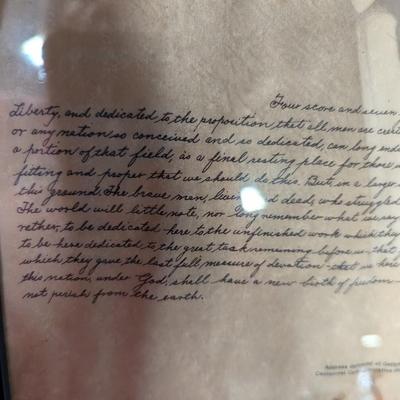 Four score and seven
Liberty, and dedicated to the proposition that all men are
or any nation so conceived and so dedicated, can long
a portion of that field, as a final resting place for those
fitting and proper that we should do this. But, in a larger
this ground. The brave men, living and dead, who struggled
The world will little note, nor long remember what we say
rether, to be dedicated here to the unfinished work which they
to be here dedicated to the great task remaining before us that
which they gave the last full measure of devotion that we here
this nation, under God, shall have a new birth of freedom
not perish from the earth.
Address delivered at